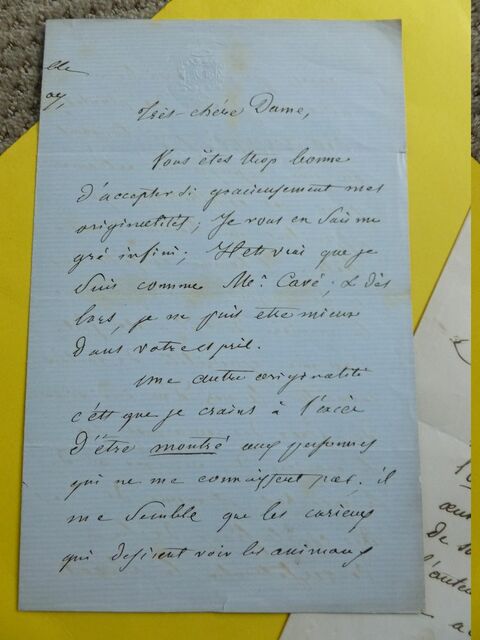 lle
ay,
Très-chère Dame,
Vous êtes trop bonne
d'accepter si gracieusement mes
originalités; Je vous en sais un
gré infini; Il est vrai que je
suis comme Mr. Cavé; & dès
lors, je ne puis etre mieux
dans votre esprit.
une autre originalité
c'est que je crains à l'excès
d'être montré aux personnes
qui ne me connaissent pas. il
me semble que les curieux
qui desirent voir les animaux
de
l'auteu
a